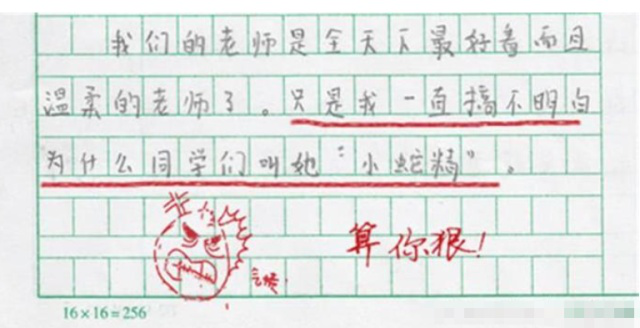 我们的老师是全天下最好看而且
温柔的老师了。只是我一直搞不明白
为什么同学们叫她“小蛇精”。
算你狠!
气愤
16×16=256